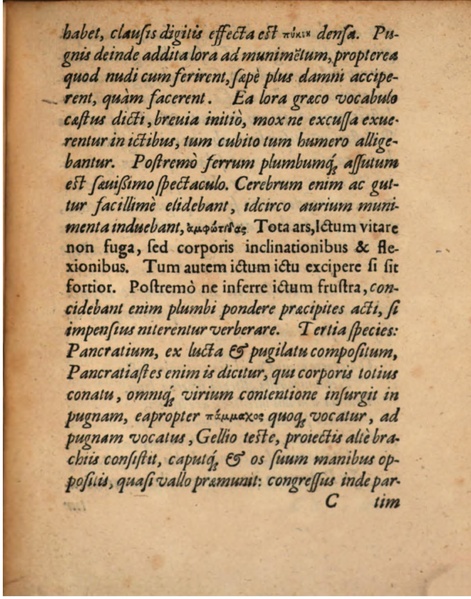 habet, clausis digitis effecta est πύκικ densa. Pu-
gnis deinde addita lora ad munimẽtum, propterea
quod nudi cum ferirent, sæpè plus damni accipe-
rent, quàm facerent. Ea lora græco vocabulo
cæstus dicti, brevia initiò, mox ne excussa exue-
rentur in ictibus, tum cubito tum humero allige-
bantur. Postremò ferrum plumbumq́; assutum
est sævißimo spectaculo. Cerebrum enim ac gut-
tur facillimè elidebant, idcirco aurium muni-
menta induebant, ἀμφώτιδας Tota ars, Ictum vitare
non fuga, sed corporis inclinationibus & fle-
xionibus. Tum autem ictum ictu excipere si sit
fortior. Postremò ne inferre ictum frustra, con-
cidebant enim plumbi pondere præcipites acti, si
impensius niterentur verberare. Tertia species:
Pancratium, ex lucta & pugilatu compositum,
Pancratiastes enim is dicitur, qui corporis totius
conatu, omniq́; virium contentione insurgit in
pugnam, eapropter πάμμαχος quoq́; vocatur, ad
pugnam vocatus, Gellio teste, proiectis altè bra-
chiis consistit, caputq́; & os suum manibus op-
positis, quasi vallo præmunit: congressus inde par-
C tim